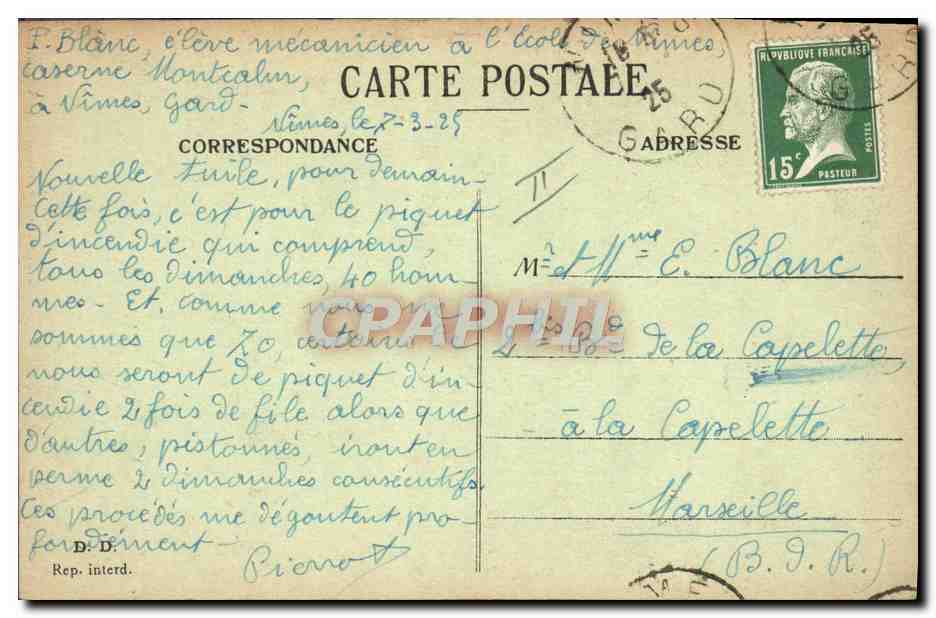 P. Blanc, élève mécanicien à l'École de Nîmes,
caserne Montcalm,
à Nîmes, Gard-
CARTE POSTALE
Nîmes, le 7-3-25
CORRESPONDANCE
Nouvelle tuile, pour demain-
Cette fois, c'est pour le piquet
d'incendie qui comprend,
tous les dimanches, 40 hom-
mes- Et, comme nous ne
sommes que 70, certains de
nous seront de piquet d'in-
cendie 2 fois de file alors que
d'autres, pistonnés, iront en
perme 2 dimanches consécutifs.
Ces procédés me dégoutent pro-
fondément-
Pierrot
D. D.
Rep. interd.
ADRESSE
II
M. et Mme E. Blanc
2 bis Bd de la Capelette,
à la Capelette
Marseille
(B. d. R.)
REPUBLIQUE FRANÇAISE
POSTES
15c
PASTEUR
25
GARD
25
CPAPHIL